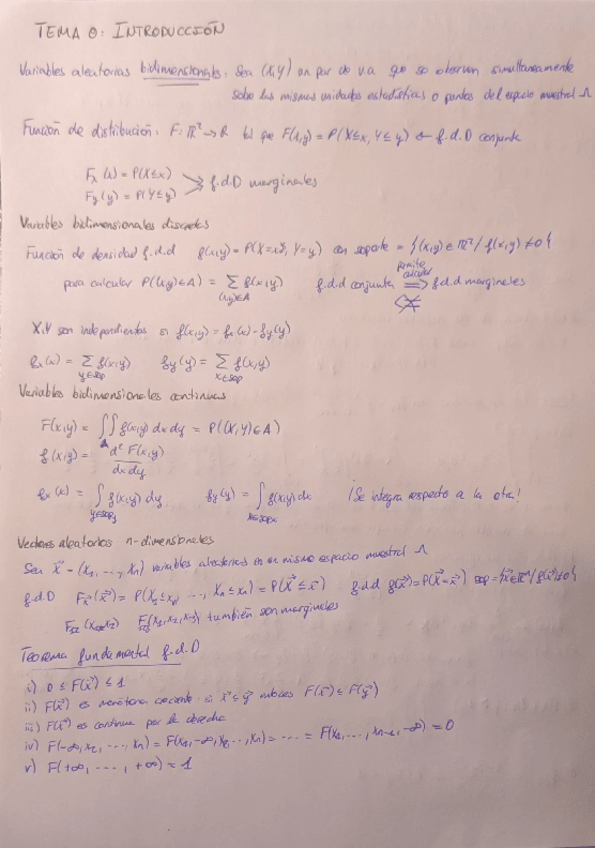 TEMA 0: INTRODUCCIÓN
Variables aleatorias bidimensionales: Sea (X,Y) un par de v.a que se observan simultaneamente
sobre las mismas unidades estadísticas o puntos del espacio muestral Ω
Función de distribución: F: ℝ² → ℝ tal que F(x,y) = P(X≤x, Y≤y) ← f.d.D conjunta
Fx(x) = P(X≤x)
Fy(y) = P(Y≤y) > f.d.D marginales
Variables bidimensionales discretas
Función de densidad f.d.d f(x,y) = P(X=x, Y=y) con soporte = {(x,y) ∈ ℝ² / f(x,y) ≠ 0}
para calcular P((x,y)∈A) = Σ f(x,y) f.d.d conjunta ⇒ f.d.d marginales
(x,y)∈A
permite calcular
X,Y son independientes si f(x,y) = fx(x)·fy(y)
fx(x) = Σ f(x,y) fy(y) = Σ f(x,y)
y∈sop x∈sop
Variables bidimensionales continuas
F(x,y) = ∬ f(x,y) dx dy = P((X,Y)∈A)
A
f(x,y) = d² F(x,y)
dx dy
fx(x) = ∫ f(x,y) dy fy(y) = ∫ f(x,y) dx ¡Se integra respecto a la otra!
y∈sopy x∈sopx
Vectores aleatorios n-dimensionales
Sea X⃗ = (X₁, ..., Xn) variables aleatorias en un mismo espacio muestral Ω
f.d.D Fx⃗(x⃗) = P(X₁≤x₁, ..., Xn≤xn) = P(X⃗≤x⃗) f.d.d f(x⃗)=P(X⃗=x⃗) sop = {x⃗∈ℝⁿ/f(x⃗)≠0}
F₁₂(x₁,x₂) (x₁,x₂,x₃) también son marginales
Teorema fundamental f.d.D
i) 0 ≤ F(x⃗) ≤ 1
ii) F(x⃗) es monótona creciente si x⃗≤y⃗ entonces F(x⃗) ≤ F(y⃗)
iii) F(x⃗) es continua por la derecha
iv) F(-∞, x₂, ..., xn) = F(x₁, -∞, x₃, ..., xn) = ... = F(x₁, ..., xn-₁, -∞) = 0
v) F(+∞, ..., +∞) = 1